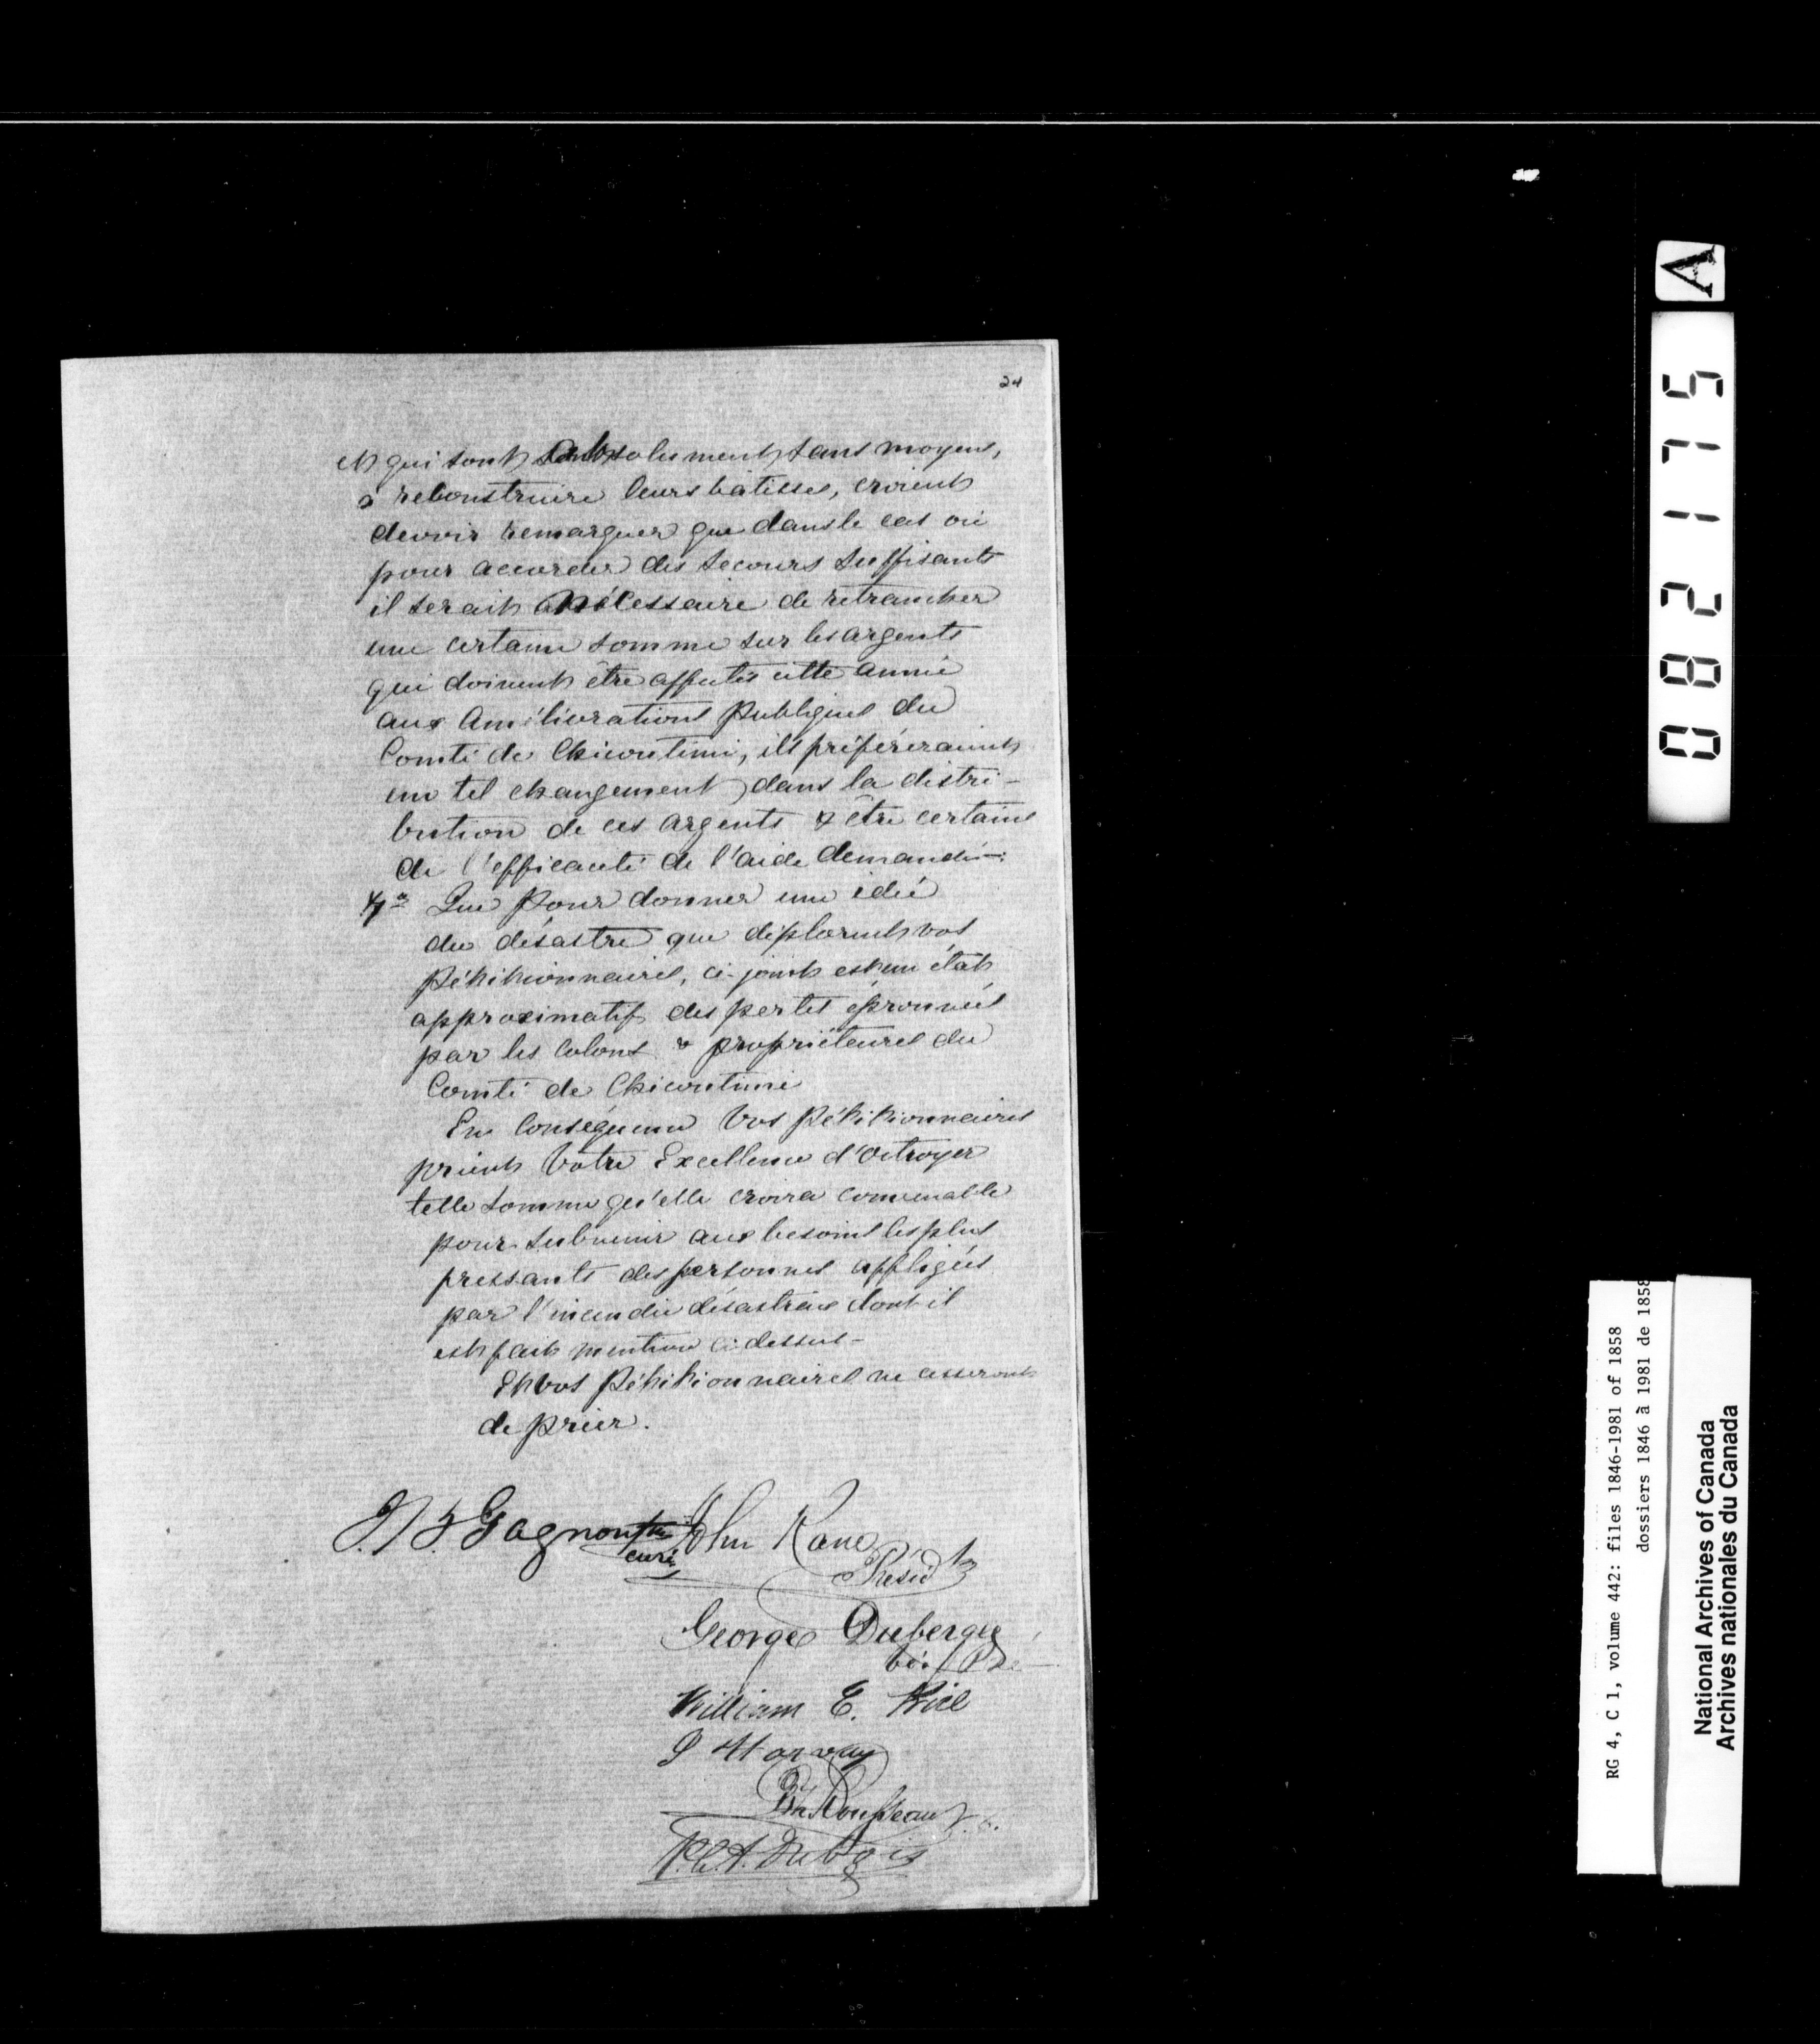 24
et qui sont absolument sans moyens,
à reconstruire leurs bâtisses, croient
devoir remarquer que dans le cas où
pour accorder des secours suffisants
il serait nécessaire de retrancher
une certaine somme sur les argents
qui doivent être affectés cette année
aux améliorations publiques du
Comté de Chicoutimi, ils préféreraient
un tel changement dans la distri-
bution de ces argents & être certains
de l'efficacité de l'aide demandée.
Que pour donner une idée
du désastre que déplorent vos
Pétitionnaires, ci-joint est un état
approximatif des pertes éprouvées
par les Colons & propriétaires du
Comté de Chicoutimi
En Conséquence Vos Pétitionnaires
prient Votre Excellence d'Octroyer
telle somme qu'elle croira convenable
pour subvenir aux besoins les plus
pressants des personnes affligées
par l'incendie désastreux dont il
est fait mention ci-dessus-
Et vos Pétitionnaires ne cesseront
de prier.
Gagnon ptre John Kane
curé
Présidt
Georges Duberger
William E. Price
Harvay
Rousseau
Dubois
A
082175
RG 4, C 1, volume 442: files 1846-1981 of 1858
dossiers 1846 à 1981 de 1858
National Archives of Canada
Archives nationales du Canada